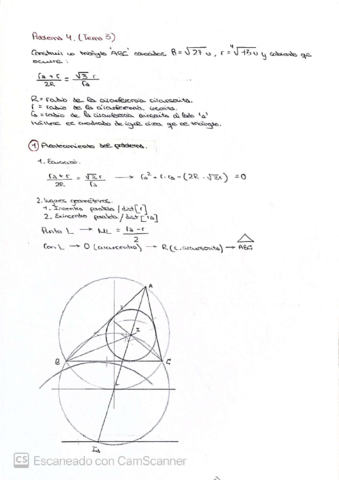 Problema 4. (Tema 3)
Construir un triángulo "ABC" conocidos B = √27 u, r = ∜15 u y sabiendo que
ocurre:
ra + r / 2R = √3 r / ra
R = radio de la circunferencia circunscrita.
r = radio de la circunferencia inscrita.
ra = radio de la circunferencia exinscrita al lado "a"
Hállese el cuadrado de igual área que el triángulo.
① Planteamiento del problema.
1. Ecuación.
ra + r / 2R = √3 r / ra → ra² + r·ra - (2R·√3r) = 0
2. Lugares geométricos.
1. Incentro paralela / dist [r]
2. Exincentro paralela / dist [ra]
Punto L → ML = ra - r / 2
Con L → O (circuncentro) → R (c. circunscrita) → ABC
A
I
B
C
L
Ia
CS Escaneado con CamScanner